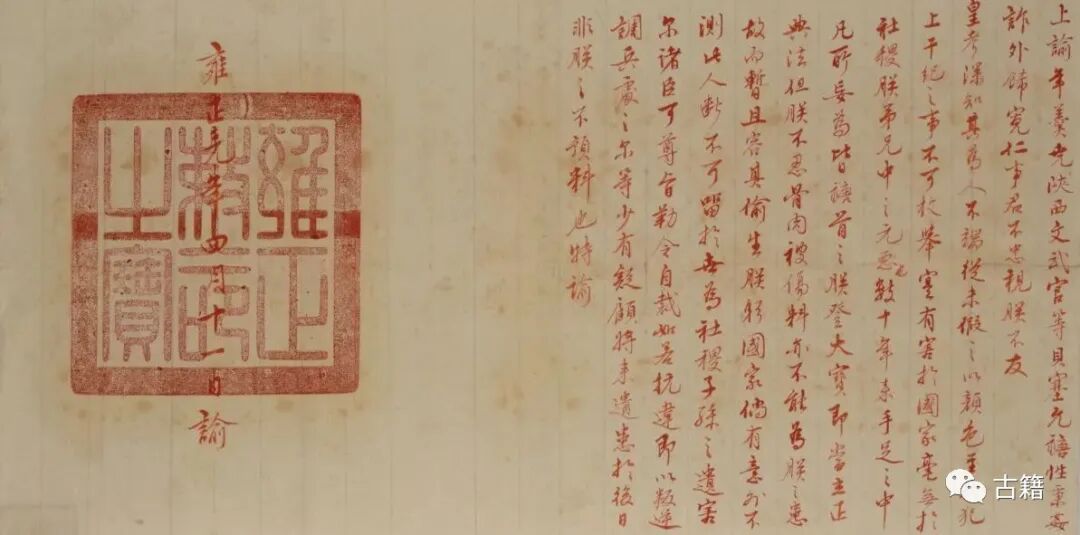 上諭年羹尭陝西文武官等貝塞允禟性秉姦
詐外歸寬仁事君不忠親朕不友
皇考深知其為人不端從未假之以顏色至於犯
上干紀之事不可枚舉實有害於國家毫無於
社稷朕弟兄中之元惡也數十年來手足之中
凡所妄為皆禟首之朕登大寶即當立正
典法但朕不忍骨肉被傷料亦不能為朕之患
故而暫且容其偷生朕躬國家倘有意外不
測此人斷不可留於世為社稷子孫之遺害
尔諸臣可尊旨勒令自裁如若抗違即以叛逆
調兵處之尔等少有疑顧將來遺患於後日
非朕之不預料也特諭
雍正元年四月十一日諭
雍正
敕命
之寶
古籍